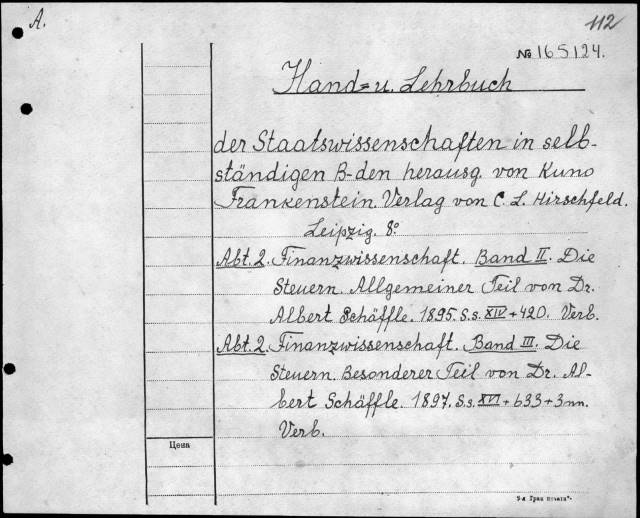 A.
112
№ 165124.
Hand= u. Lehrbuch
der Staatswissenschaften in selb-
ständigen B-den herausg. von Kuno
Frankenstein. Verlag von C. L. Hirschfeld.
Leipzig. 8°
Abt. 2. Finanzwissenschaft. Band II. Die
Steuern. Allgemeiner Teil von Dr.
Albert Schäffle. 1895. S.s. XIV + 420. Verb.
Abt. 2. Finanzwissenschaft. Band III. Die
Steuern. Besonderer Teil von Dr. Al-
bert Schäffle. 1897. S.s. XVI + 633 + 3 nn.
Verb.
Цена